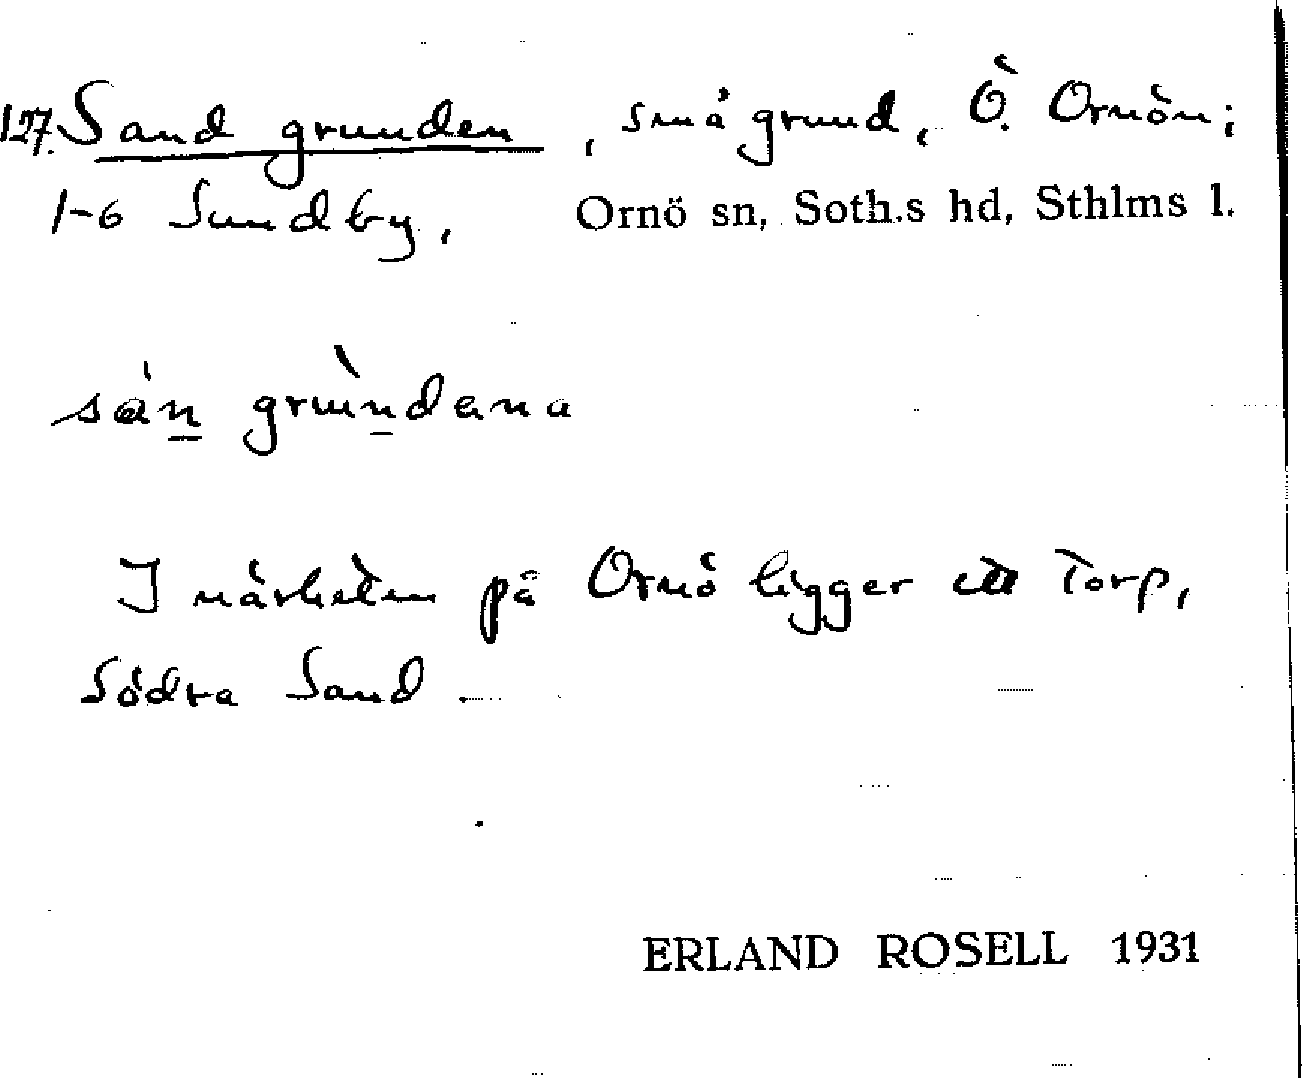 127. Sand grunden, små grund, Ö. Ornön;
1-6 Sundby, Ornö sn, Soth.s hd, Sthlms l.
sán grùndena
I närheten på Ornö ligger ett torp,
Södra Sand.
ERLAND ROSELL 1931